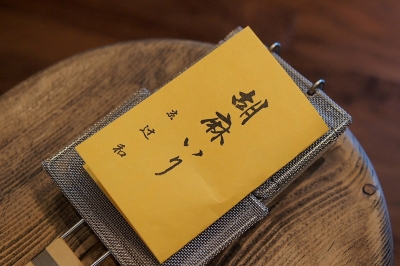 胡麻いり
京 辻和